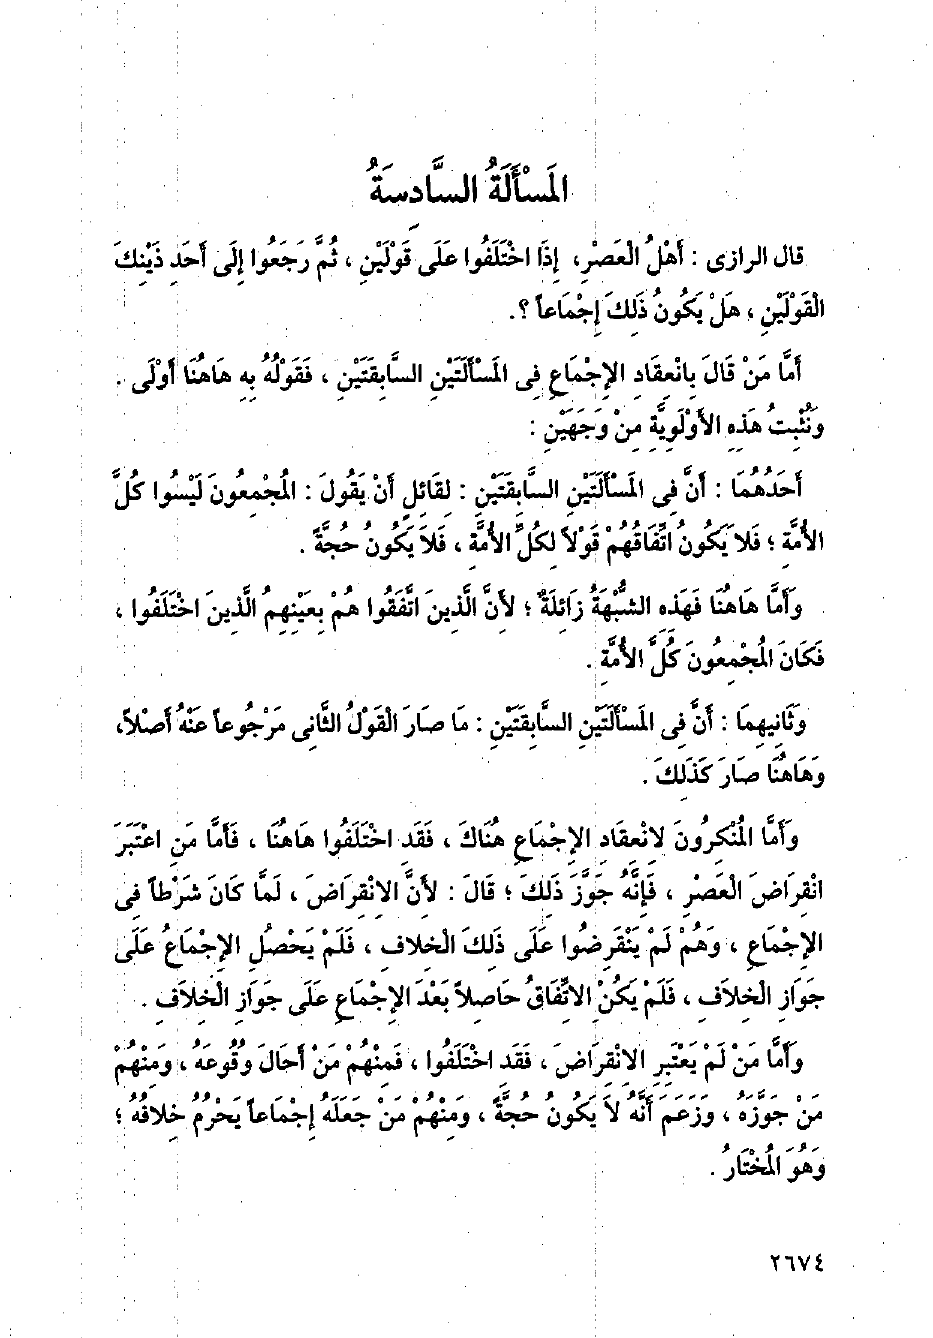 المَسْأَلَةُ السَّادِسَةُ
قال الرازى : أَهْلُ الْعَصْرِ، إِذَا اخْتَلَفُوا عَلَى قَوْلَيْنِ ، ثُمَّ رَجَعُوا إِلَى أَحَدِ ذَيْنِكَ
الْقَوْلَيْنِ ، هَلْ يَكُونُ ذَلِكَ إِجْمَاعاً ؟.
أَمَّا مَنْ قَالَ بِانْعِقَادِ الإِجْمَاعِ فِى المَسْأَلَتَيْنِ السَّابِقَتَيْنِ ، فَقَوْلُهُ بِهِ هَاهُنَا أَوْلَى .
وَنُثْبِتُ هَذِهِ الأَوْلَوِيَّةَ مِنْ وَجَهَيْنِ :
أَحَدُهُمَا : أَنَّ فِى المَسْأَلَتَيْنِ السَّابِقَتَيْنِ : لِقَائِلٍ أَنْ يَقُولَ : المُجْمِعُونَ لَيْسُوا كُلَّ
الأُمَّةِ ؛ فَلاَ يَكُونُ اتِّفَاقُهُمْ قَوْلاً لِكُلِّ الأُمَّةِ ، فَلاَ يَكُونُ حُجَّةً .
وَأَمَّا هَاهُنَا فَهَذِهِ الشُّبْهَةُ زَائِلَةٌ ؛ لأَنَّ الَّذِينَ اتَّفَقُوا هُمْ بِعَيْنِهِمُ الَّذِينَ اخْتَلَفُوا ،
فَكَانَ المُجْمِعُونَ كُلَّ الأُمَّةِ .
وَثَانِيهِمَا : أَنَّ فِى المَسْأَلَتَيْنِ السَّابِقَتَيْنِ : مَا صَارَ الْقَوْلُ الثَّانِى مَرْجُوعاً عَنْهُ أَصْلاً،
وَهَاهُنَا صَارَ كَذَلِكَ .
وَأَمَّا المُنْكِرُونَ لانْعِقَادِ الإِجْمَاعِ هُنَاكَ ، فَقَدِ اخْتَلَفُوا هَاهُنَا ، فَأَمَّا مَنِ اعْتَبَرَ
انْقِرَاضَ الْعَصْرِ ، فَإِنَّهُ جَوَّزَ ذَلِكَ ؛ قَالَ : لأَنَّ الانْقِرَاضَ ، لَمَّا كَانَ شَرْطاً فِى
الإِجْمَاعِ ، وَهُمْ لَمْ يَنْقَرِضُوا عَلَى ذَلِكَ الْخِلافِ ، فَلَمْ يَحْصُلِ الإِجْمَاعُ عَلَى
جَوَازِ الْخِلاَفِ ، فَلَمْ يَكُنْ الاتِّفَاقُ حَاصِلاً بَعْدَ الإِجْمَاعِ عَلَى جَوَازِ الْخِلاَفِ .
وَأَمَّا مَنْ لَمْ يَعْتَبِرِ الانْقِرَاضَ ، فَقَدِ اخْتَلَفُوا ، فَمِنْهُمْ مَنْ أَحَالَ وُقُوعَهُ ، وَمِنْهُمْ
مَنْ جَوَّزَهُ ، وَزَعَمَ أَنَّهُ لاَ يَكُونُ حُجَّةً ، وَمِنْهُمْ مَنْ جَعَلَهُ إِجْمَاعاً يَحْرُمُ خِلافُهُ ؛
وَهُوَ المُخْتَارُ .
٢٦٧٤